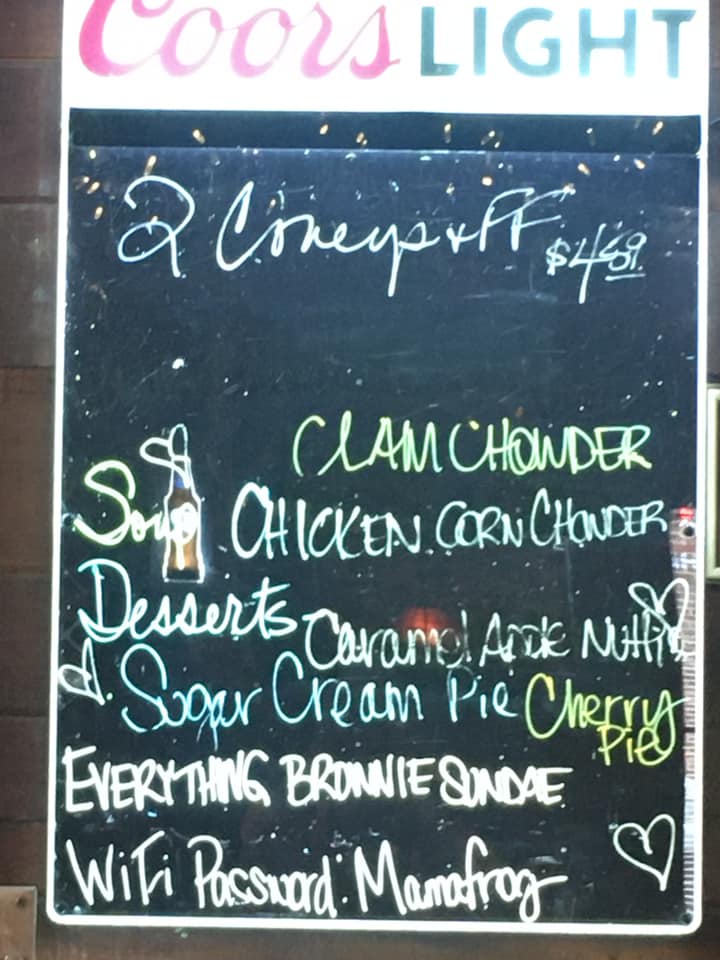 Coors LIGHT
2 Coneys + FF $4.59
CLAM CHOWDER
Soup CHICKEN CORN CHOWDER
Desserts Caramel Apple Nutty
Sugar Cream Pie Cherry
Pie
EVERYTHING BROWNIE SUNDAE
WiFi Password: Mamafrog